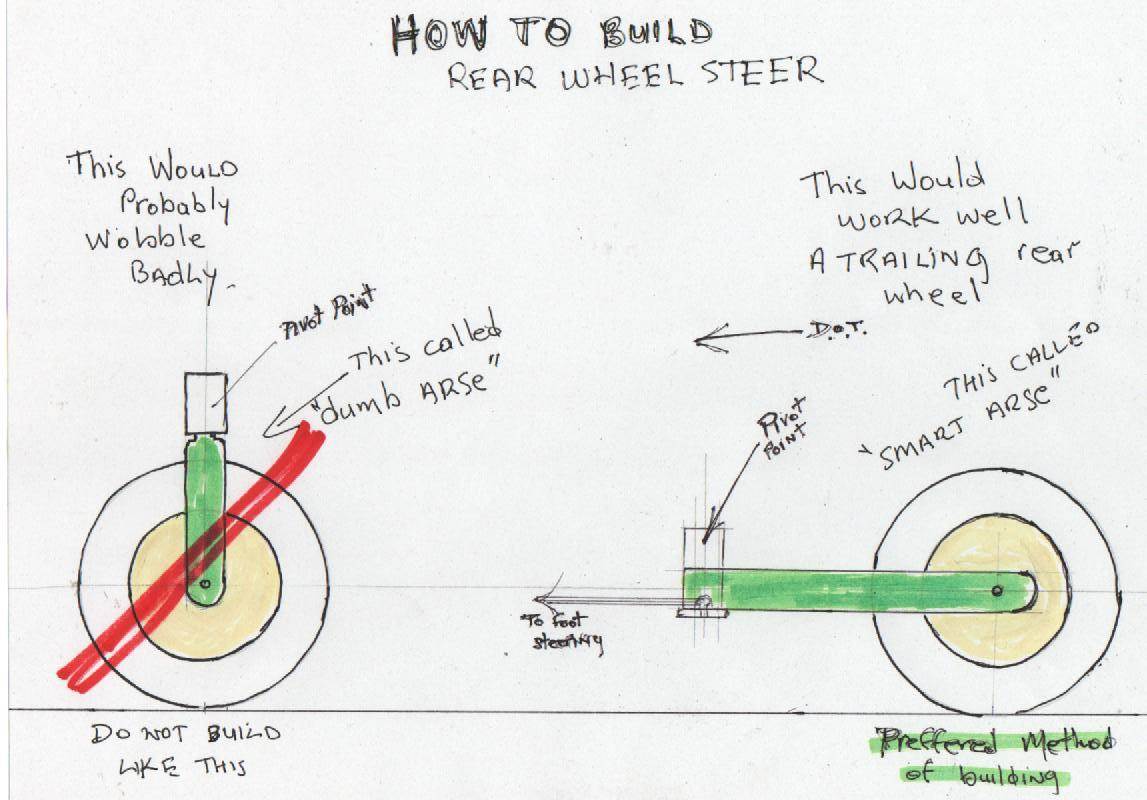 HOW TO BUILD
REAR WHEEL STEER
This WOULD
Probably
Wobble
BADLY
Pivot Point
This called
"dumb ARSE"
This Would
WORK well
A TRAILING rear
wheel
D.O.T.
THIS CALLED
"SMART ARSE"
Pivot
POINT
To foot
steering
DO NOT BUILD
LIKE THIS
Preffered Method
of building